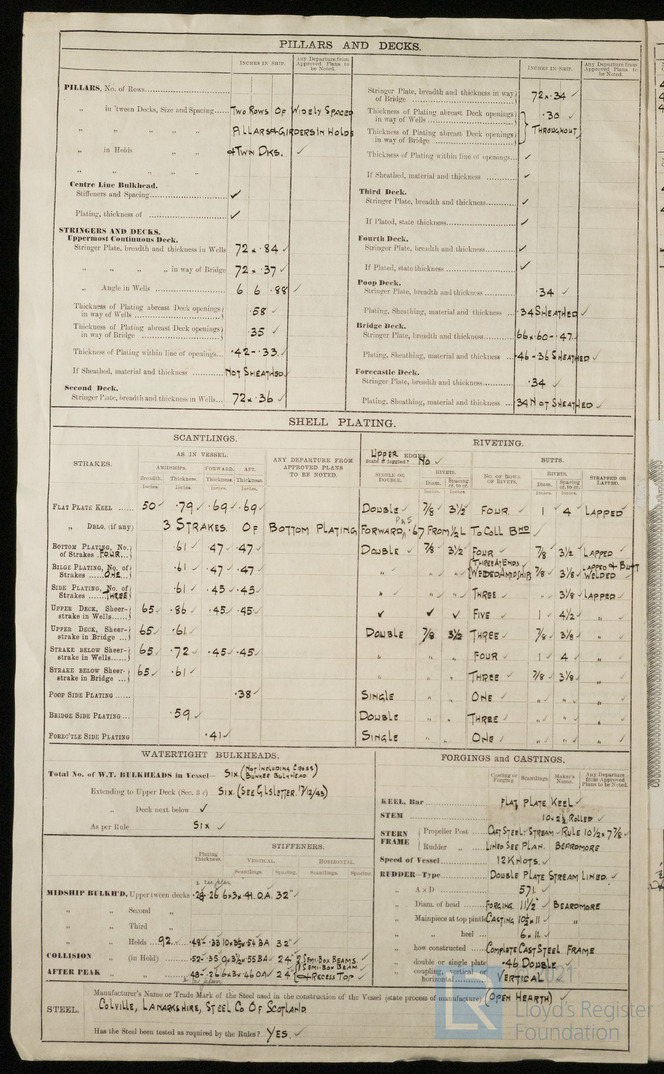 PILLARS AND DECKS.
INCHES IN SHIP.
Any Departure from Approved Plans to be Noted.
PILLARS, No. of Rows
„ in 'tween Decks, Size and Spacing TWO ROWS OF WIDELY SPACED
„ „ „ „ PILLARS & GIRDERS IN HOLDS
„ in Holds „ „ & TWN DKS. ✓
„ „ „ „
Centre Line Bulkhead.
Stiffeners and Spacing ✓
Plating, thickness of ✓
STRINGERS AND DECKS.
Uppermost Continuous Deck.
Stringer Plate, breadth and thickness in Wells 72 x .84 ✓
„ „ „ „ in way of Bridge 72 x .37 ✓
„ Angle in Wells 6 6 .88 ✓
Thickness of Plating abreast Deck openings in way of Wells .58 ✓
Thickness of Plating abreast Deck openings in way of Bridge .35 ✓
Thickness of Plating within line of openings .42 - .33 ✓
If Sheathed, material and thickness NOT SHEATHED
Second Deck.
Stringer Plate, breadth and thickness in Wells 72 x .36 ✓
INCHES IN SHIP.
Any Departure from Approved Plans to be Noted.
Stringer Plate, breadth and thickness in way of Bridge 72 x .34 ✓
Thickness of Plating abreast Deck openings in way of Wells .30 ✓
Thickness of Plating abreast Deck openings in way of Bridge THROUGHOUT
Thickness of Plating within line of openings ✓
If Sheathed, material and thickness ✓
Third Deck.
Stringer Plate, breadth and thickness ✓
If Plated, state thickness ✓
Fourth Deck.
Stringer Plate, breadth and thickness ✓
If Plated, state thickness ✓
Poop Deck.
Stringer Plate, breadth and thickness .34 ✓
Plating, Sheathing, material and thickness .34 SHEATHED ✓
Bridge Deck.
Stringer Plate, breadth and thickness 66 x .60 - .47
Plating, Sheathing, material and thickness .46 - .36 SHEATHED ✓
Forecastle Deck.
Stringer Plate, breadth and thickness .34 ✓
Plating, Sheathing, material and thickness .34 NOT SHEATHED ✓
SHELL PLATING.
SCANTLINGS.
STRAKES.
AS IN VESSEL.
AMIDSHIPS. FORWARD. AFT.
Breadth. Thickness. Thickness. Thickness.
Inches. Inches. Inches. Inches.
ANY DEPARTURE FROM APPROVED PLANS TO BE NOTED.
RIVETING.
UPPER EDGES.
State if joggled? NO ✓
BUTTS.
SINGLE OR DOUBLE.
RIVETS.
Diam. Spacing cr. to cr.
NO. OF ROWS OF RIVETS.
RIVETS.
Diam. Spacing cr. to cr.
STRAPPED OR LAPPED.
FLAT PLATE KEEL 50 ✓ .79 ✓ .69 ✓ .69 ✓ DOUBLE 7/8 3½ FOUR ✓ 1 4 ✓ LAPPED
„ DBLG. (if any) 3 STRAKES OF BOTTOM PLATING FORWARD P&S .67 FROM ½L TO COLL BHD
BOTTOM PLATING, No. of Strakes FOUR .61 ✓ .47 ✓ .47 ✓ DOUBLE ✓ 7/8 3½ ✓ FOUR ✓ 7/8 3½ ✓ LAPPED
BILGE PLATING, No. of Strakes ONE .61 ✓ .47 ✓ .47 ✓ „ „ „ (THREE AT ENDS WELDED AMIDSHIP) 7/8 3⅛ ✓ LAPPED & BUTT WELDED
SIDE PLATING, No. of Strakes THREE .61 ✓ .45 ✓ .45 ✓ „ „ „ THREE ✓ „ 3⅛ ✓ LAPPED
UPPER DECK, Sheerstrake in Wells 65 ✓ .86 ✓ .45 ✓ .45 ✓ ✓ ✓ ✓ FIVE ✓ 1 ✓ 4½ ✓ „
UPPER DECK, Sheerstrake in Bridge 65 ✓ .61 ✓ DOUBLE 7/8 3½ THREE ✓ 7/8 ✓ 3⅛ ✓ „
STRAKE BELOW Sheerstrake in Wells 65 ✓ .72 ✓ .45 ✓ .45 ✓ „ „ „ FOUR ✓ 1 4 ✓ „
STRAKE BELOW Sheerstrake in Bridge 65 ✓ .61 ✓ „ „ „ THREE ✓ 7/8 ✓ 3⅛ ✓ „
POOP SIDE PLATING .38 ✓ SINGLE „ „ ONE ✓ „ „ „
BRIDGE SIDE PLATING .59 ✓ DOUBLE „ „ THREE ✓ „ „ „
FOREC'TLE SIDE PLATING .41 ✓ SINGLE „ „ ONE ✓ „ „ „
WATERTIGHT BULKHEADS.
Total No. of W.T. BULKHEADS in Vessel— SIX (NOT INCLUDING CROSS BUNKER BULKHEAD)
Extending to Upper Deck (Sec. 3 c) SIX. (SEE GLS LETTER. 17/12/43)
„ Deck next below ✓
As per Rule SIX ✓
Plating Thickness.
STIFFENERS.
VERTICAL. HORIZONTAL.
Scantlings. Spacing. Scantlings. Spacing.
MIDSHIP BULKH'D, Upper tween decks .26 6 x 3 x .41 O.A. 32"
„ „ Second „
„ „ Third „
„ „ Holds 92 32"
COLLISION „ (in Hold) 24" 2 SEMI-BOX BEAMS
AFTER PEAK „ „ 24" 1 SEMI BOX BEAM & RECESS TOP ✓
FORGINGS and CASTINGS.
Casting or Forging. Scantlings. Maker's Name. Any Departure from Approved Plans to be Noted.
KEEL, Bar FLAT PLATE KEEL ✓
STEM 10 x 2½ ROLLED ✓
STERN FRAME
Propeller Post CAST STEEL STREAM - RULE 10½ x 7⅞ ✓
Rudder „ LINED SEE PLAN. BEARDMORE
Speed of Vessel 12 KNOTS. ✓
RUDDER—Type DOUBLE PLATE STREAM LINED. ✓
„ A x D 571. ✓
„ Diam. of head FORGING 11½" ✓ BEARDMORE
„ Mainpiece at top pintle CASTING 10½ x 11 ✓ „
„ „ heel 6 x 11. ✓
„ how constructed COMPLETE CAST STEEL FRAME
„ double or single plate .46 DOUBLE ✓
„ coupling, vertical or horizontal VERTICAL ✓
STEEL.
Manufacturer's Name or Trade Mark of the Steel used in the construction of the Vessel (state process of manufacture) (OPEN HEARTH) ✓
COLVILLE, LANARKSHIRE, STEEL CO OF SCOTLAND
Has the Steel been tested as required by the Rules? YES. ✓
LR
2021
Lloyd's Register
Foundation